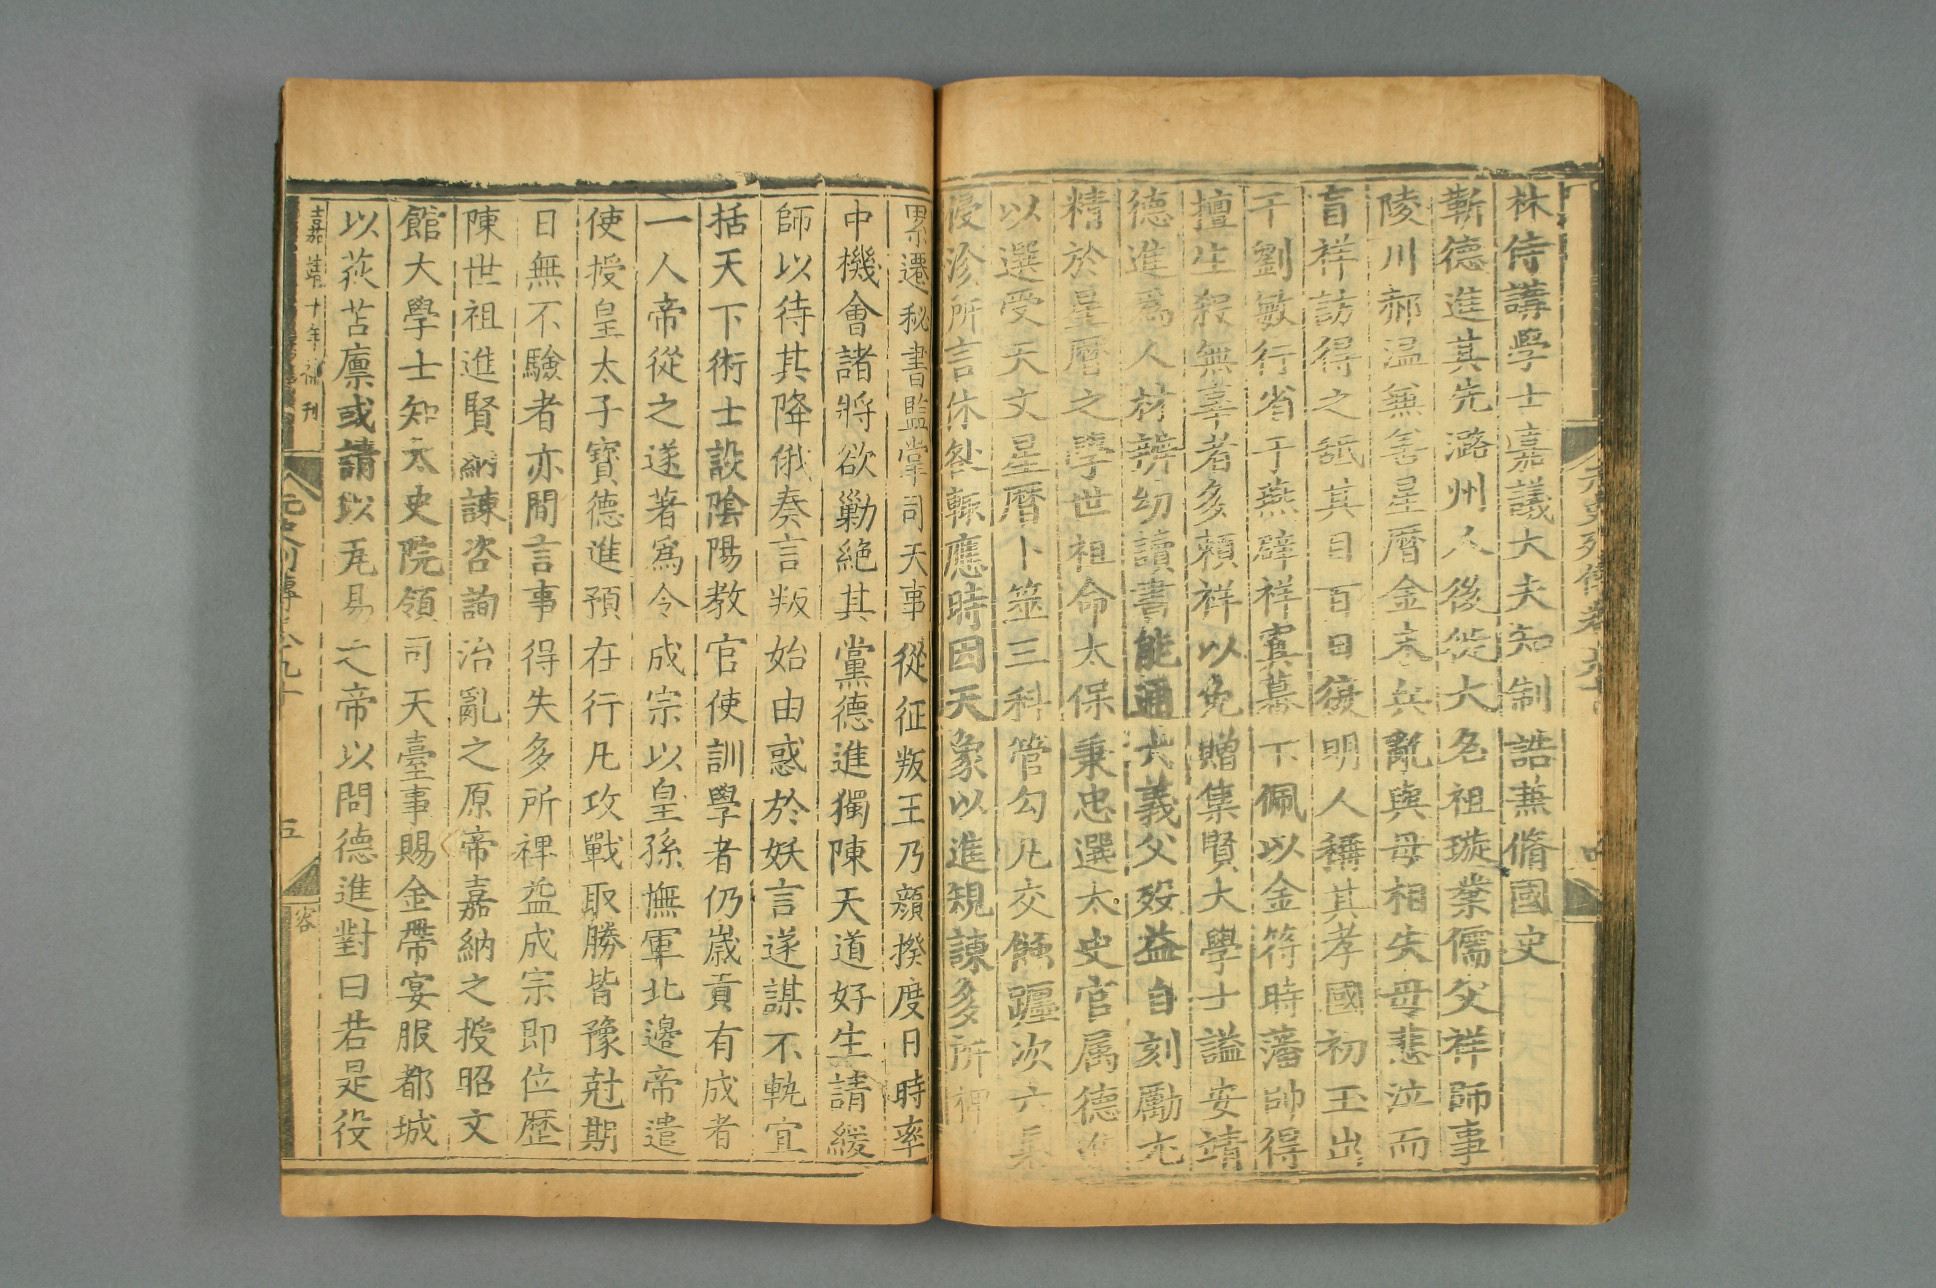 林侍講學士嘉議大夫知制誥兼脩國史
靳德進其先潞州人後徙大名祖璇業儒父祥師事
陵川郝温兼善星曆金末兵亂與母相失母悲泣而
盲祥訪得之舐其目百日復明人稱其孝國初玉出
干劉敏行省于燕辟祥寘幕下佩以金符時藩帥得
擅生殺無辜者多賴祥以免贈集賢大學士謚安靖
德進爲人材辨幼讀書能通大義父殁益自刻勵尤
精於星曆之學世祖命太保秉忠選太史官属德進
以選受天文星曆卜筮三科管勾凡交蝕躔次六氣
侵沴所言休咎輒應時因天象以進規諫多所裨
累遷秘書監掌司天事從征叛王乃顔揆度日時率
中機會諸將欲勦絶其黨德進獨陳天道好生請緩
師以待其降俄奏言叛始由惑於妖言遂謀不軌宜
括天下術士設陰陽教官使訓學者仍歲貢有成者
一人帝從之遂著爲令成宗以皇孫撫軍北邊帝遣
使授皇太子寳德進預在行凡攻戰取勝皆豫尅期
日無不驗者亦間言事得失多所裨益成宗即位歴
陳世祖進賢納諫咨詢治亂之原帝嘉納之授昭文
館大學士知太史院領司天臺事賜金帶宴服都城
以荻苫廪或請以瓦易之帝以問德進對曰若是役
嘉靖十年補刊
元史列傳卷九十
五
客